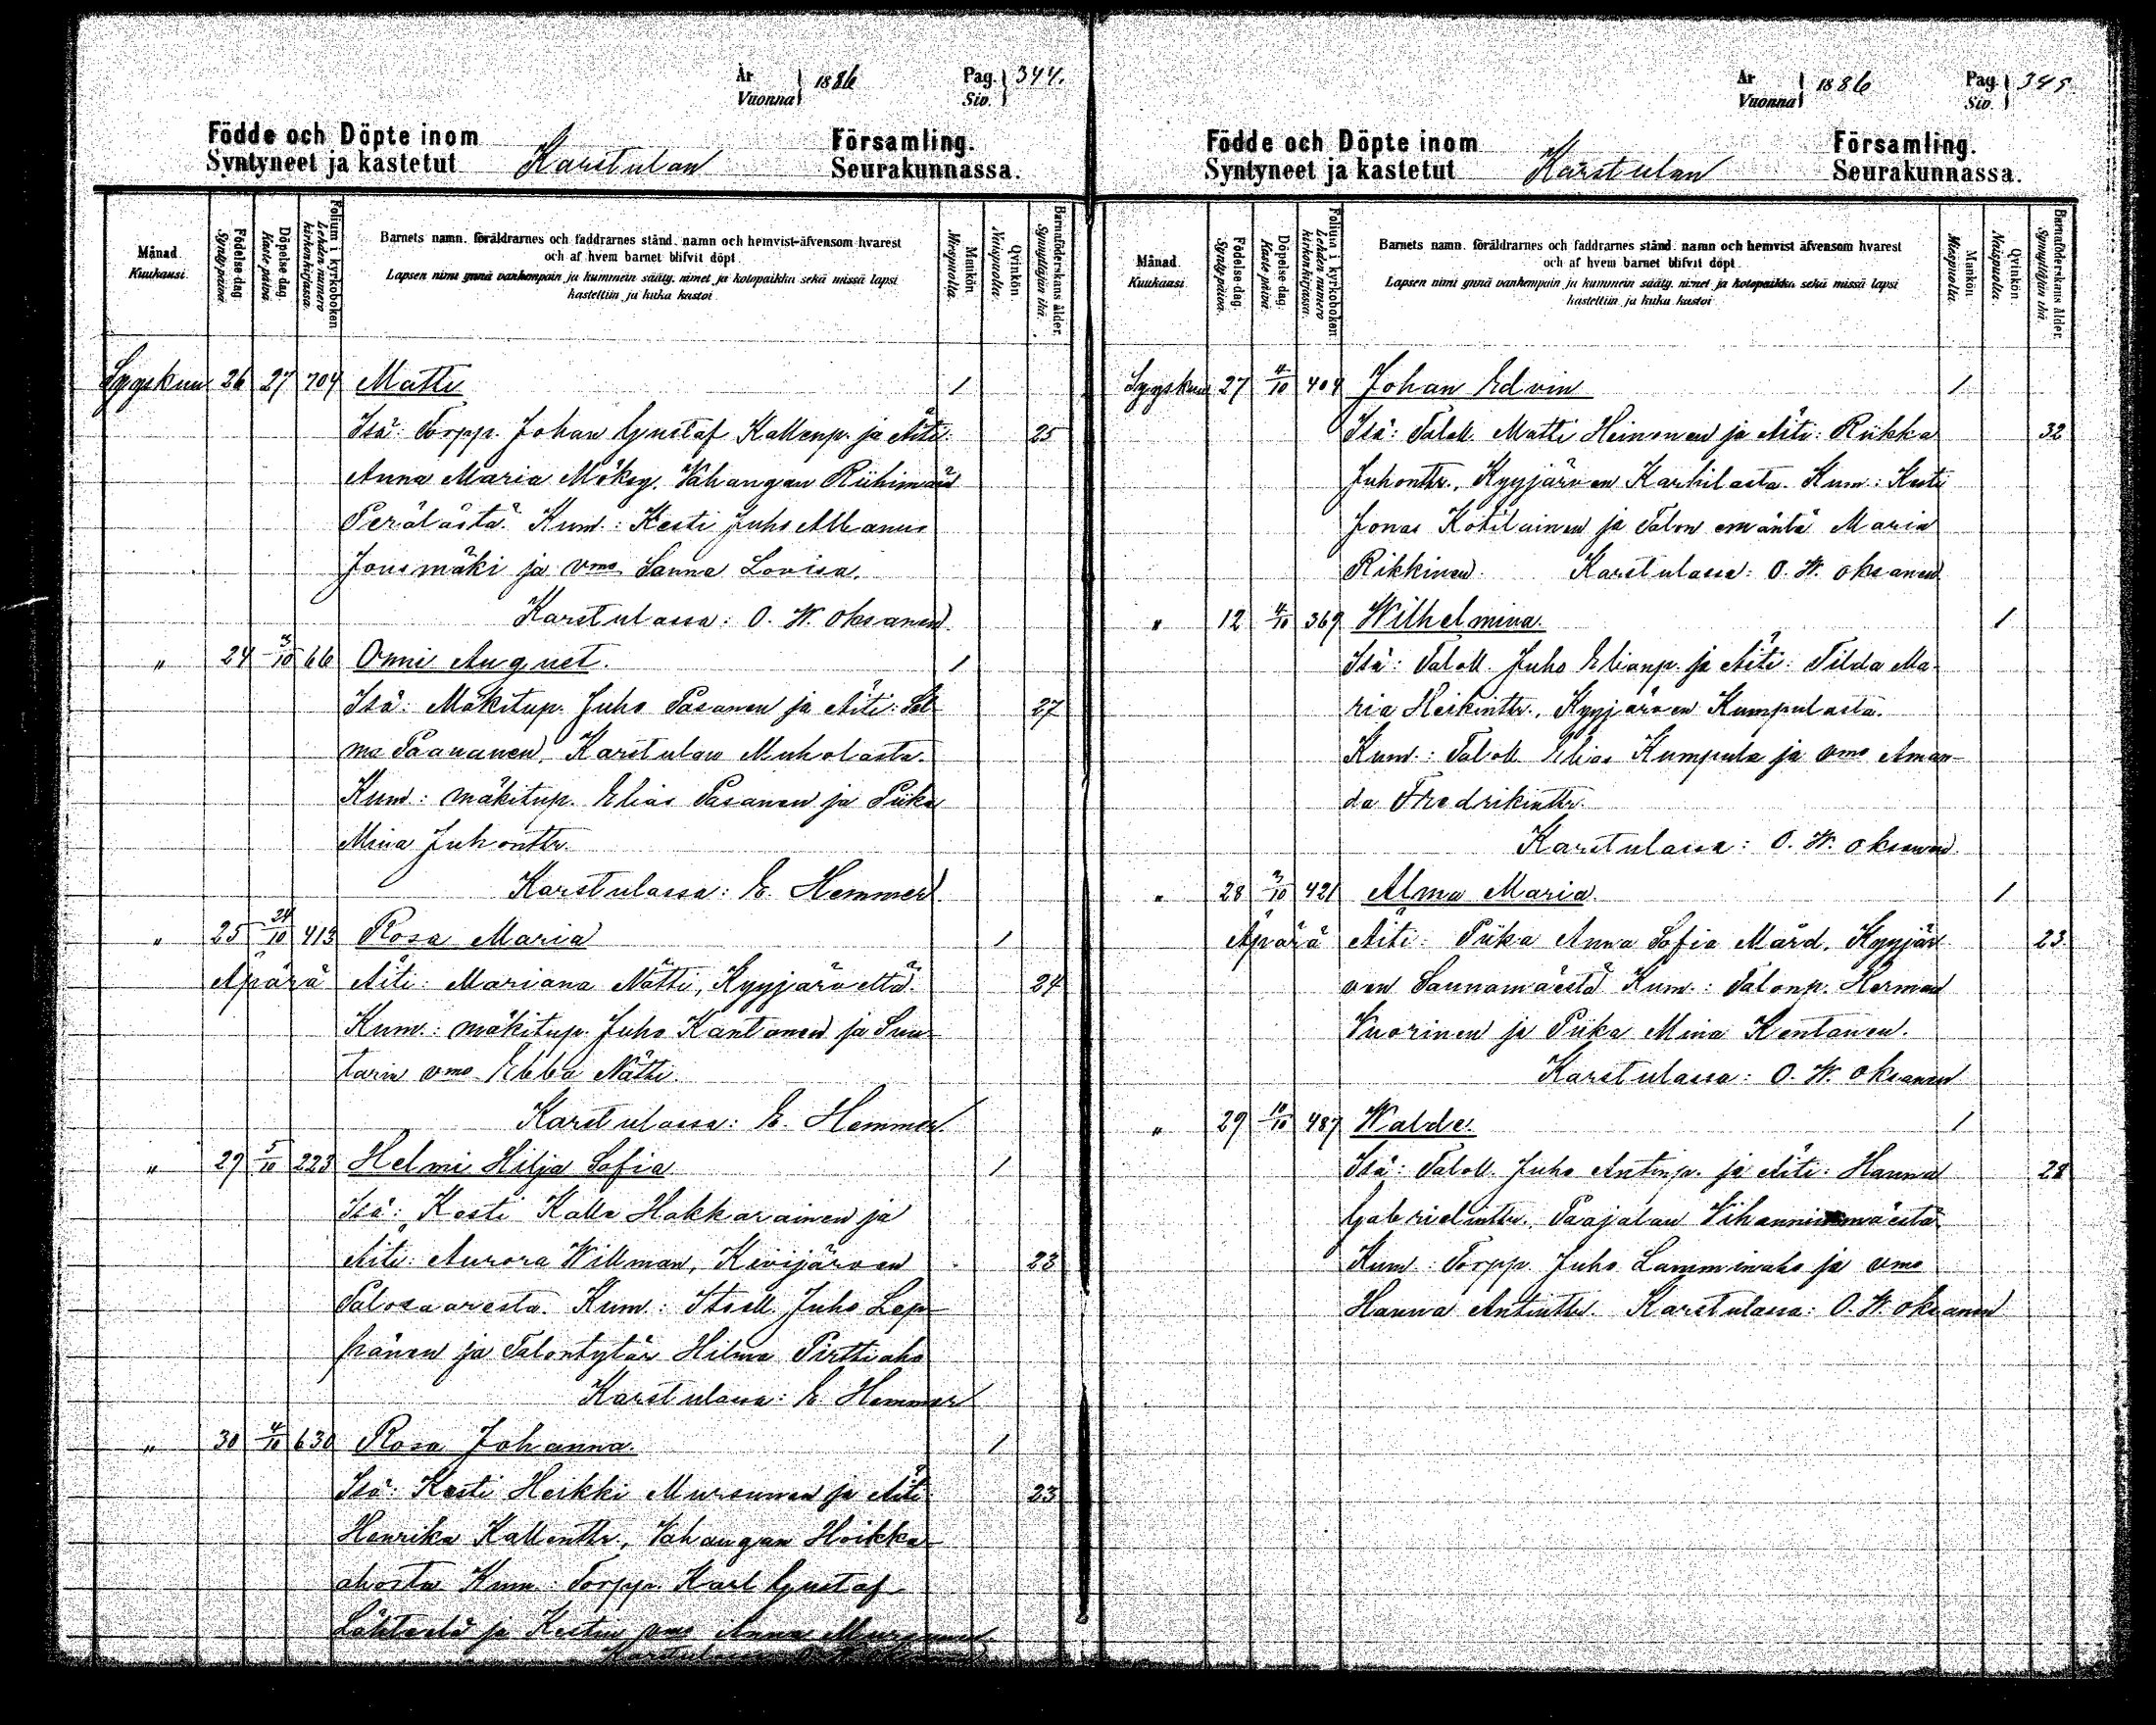 År
Vuonna 1886 Pag.
Siv. 344.
Födde och Döpte inom
Syntyneet ja kastetut Karstulan Församling.
Seurakunnassa.
Månad.
Kuukausi.
Födelse-dag.
Synty-päivä.
Döpelse-dag.
Kaste-päivä.
Folium i kyrkoboken
Lehden numero
kirkonkirjassa.
Barnets namn, föräldrarnes och faddrarnes stånd, namn och hemvist äfvensom hvarest
och af hvem barnet blifvit döpt.
Lapsen nimi ynnä vanhempain ja kummein sääty, nimet ja kotopaikka sekä missä lapsi
kastettiin ja kuka kastoi
Mankön.
Miespuolta.
Qvinkön.
Naispuolta.
Barnaföderskans ålder.
Synnyttäjän ikä.
Syyskuu 26 27 704 Matti 1
Isä: Torpp. Johan Gustaf Kallenp. ja Äiti: 25
Anna Maria Vahangan Riihimäen
Perälästä. Kum.: Kesti Juho Albanus
Jousmäki ja vmo Sanna Lovisa.
Karstulassa: O. W. Oksanen.
" 24 3/10 66 Onni August. 1
Isä: Mäkitup. Juho Pasanen ja Äiti: Sel- 27
ma Paananen, Karstulan Muholasta.
Kum.: mäkitup. Elias Pasanen ja Piika
Mina Juhontr.
Karstulassa: E. Hemmer.
" 25 24/10 413 Rosa Maria 1
Äpärä Äiti: Mariana Nätti, Kyyjärveltä. 24
Kum.: mäkitup. Juho Kantonen ja Suu-
tarin vmo Ebba Nätti.
Karstulassa: E. Hemmer.
" 29 5/10 223 Helmi Hilja Sofia 1
Isä: Kesti Kalle Hakkarainen ja
Äiti: Aurora Willman, Kivijärven 23
Talosaaresta. Kum.: Itsell. Juho Lep-
pänen ja Talontytär Hilma Pirttiaho
Karstulassa: E. Hemmer
" 30 4/10 630 Rosa Johanna. 1
Isä: Kesti Heikki Mursunen ja Äiti 23
Henrika Kallentr., Vahangan Hoikka-
ahosta Kum.: Torpp. Karl Gustaf
ja Kestin vmo Anna Mursunen.
Karstulassa O. W. Oksanen
År
Vuonna 1886 Pag.
Siv. 345
Födde och Döpte inom
Syntyneet ja kastetut Karstulan Församling.
Seurakunnassa.
Månad.
Kuukausi.
Födelse-dag.
Synty-päivä.
Döpelse-dag.
Kaste-päivä.
Folium i kyrkoboken
Lehden numero
kirkonkirjassa.
Barnets namn, föräldrarnes och faddrarnes stånd, namn och hemvist äfvensom hvarest
och af hvem barnet blifvit döpt.
Lapsen nimi ynnä vanhempain ja kummein sääty, nimet ja kotopaikka sekä missä lapsi
kastettiin ja kuka kastoi
Mankön.
Miespuolta.
Qvinkön.
Naispuolta.
Barnaföderskans ålder.
Synnyttäjän ikä.
Syyskuu 27 4/10 404 Johan Edvin 1
Isä: Taloll. Matti Heinonen ja Äiti: Riikka 32
Juhontr., Kyyjärven Karhilasta. Kum.: Kesti
Jonas Kotilainen ja Talon emäntä Maria
Rikkinen. Karstulassa: O. W. Oksanen
" 12 4/10 369 Wilhelmina. 1
Isä: Taloll. Juho Elianp. ja Äiti: Tilda Ma-
ria Heikintr., Kyyjärven Kumpulasta.
Kum.: Taloll. Elias Kumpula ja vmo Aman-
da Fredrikintr.
Karstulassa: O. W. Oksanen.
" 28 3/10 421 Alma Maria 1
Äpärä Äiti: Piika Anna Sofia Mård, Kyyjär- 23
ven Saunamäestä Kum.: Talonp. Herman
Vuorinen ja Piika Mina Kentanen.
Karstulassa: O. W. Oksanen
" 29 10/10 487 Walde. 1
Isä: Taloll. Juho Antinp. ja Äiti: Hanna 28
Gabrielintr., Paajalan Vihanninmäestä
Kum.: Torpp. Juho Lamminaho ja vmo
Hanna Antintr. Karstulassa: O. W. Oksanen